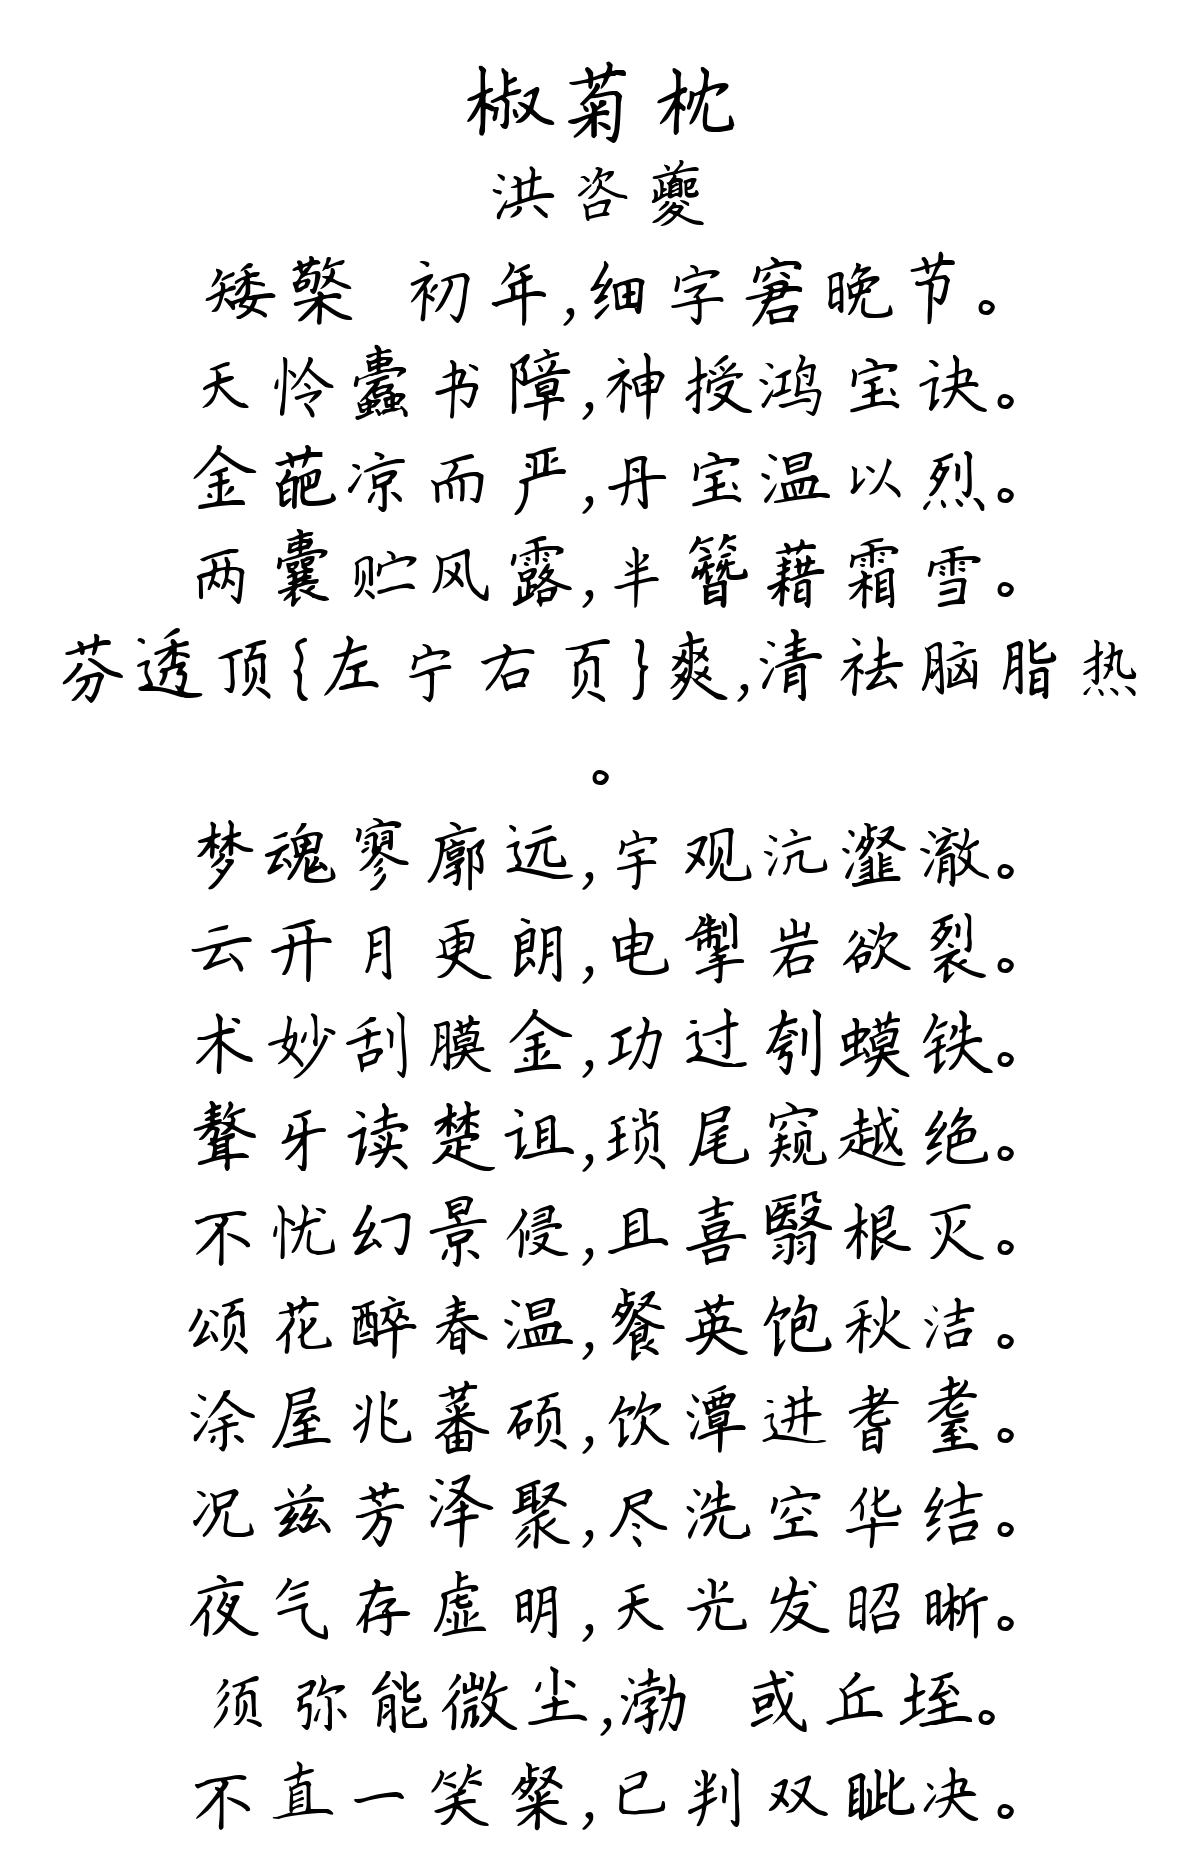 椒菊枕
洪咨夔
矮檠 初年,细字窘晚节。
天怜蠹书障,神授鸿宝诀。
金葩凉而严,丹宝温以烈。
两囊贮风露,半簪藉霜雪。
芬透顶{左宁右页}爽,清祛脑脂热
。
梦魂寥廓远,宇观沆瀣澈。
云开月更朗,电掣岩欲裂。
术妙刮膜金,功过刳蟆铁。
聱牙读楚诅,琐尾窥越绝。
不忧幻景侵,且喜翳根灭。
颂花醉春温,餐英饱秋洁。
涂屋兆蕃硕,饮潭进耆耋。
况兹芳泽聚,尽洗空华结。
夜气存虚明,天光发昭晰。
须弥能微尘,渤 或丘垤。
不直一笑粲,已判双眦决。